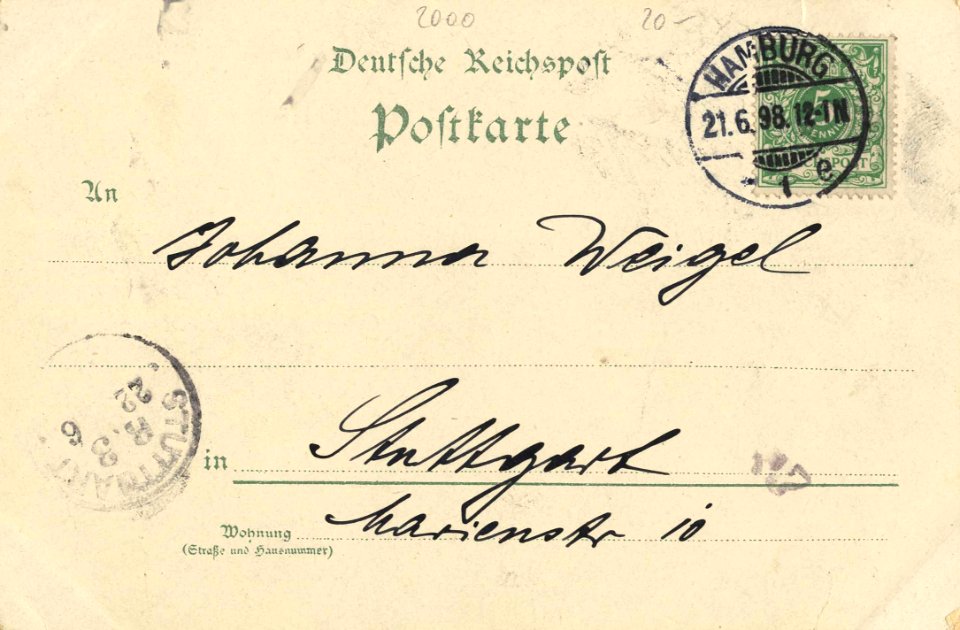 2000 20-
Deutsche Reichspost
Postkarte
HAMBURG
21.6.98.12-1N
* 1 e
5
PFENNIG
REICHSPOST
An
Johanna Weigel
STUTTGART
22 6
in Stuttgart
Wohnung Marienstr 10
(Straße und Hausnummer)